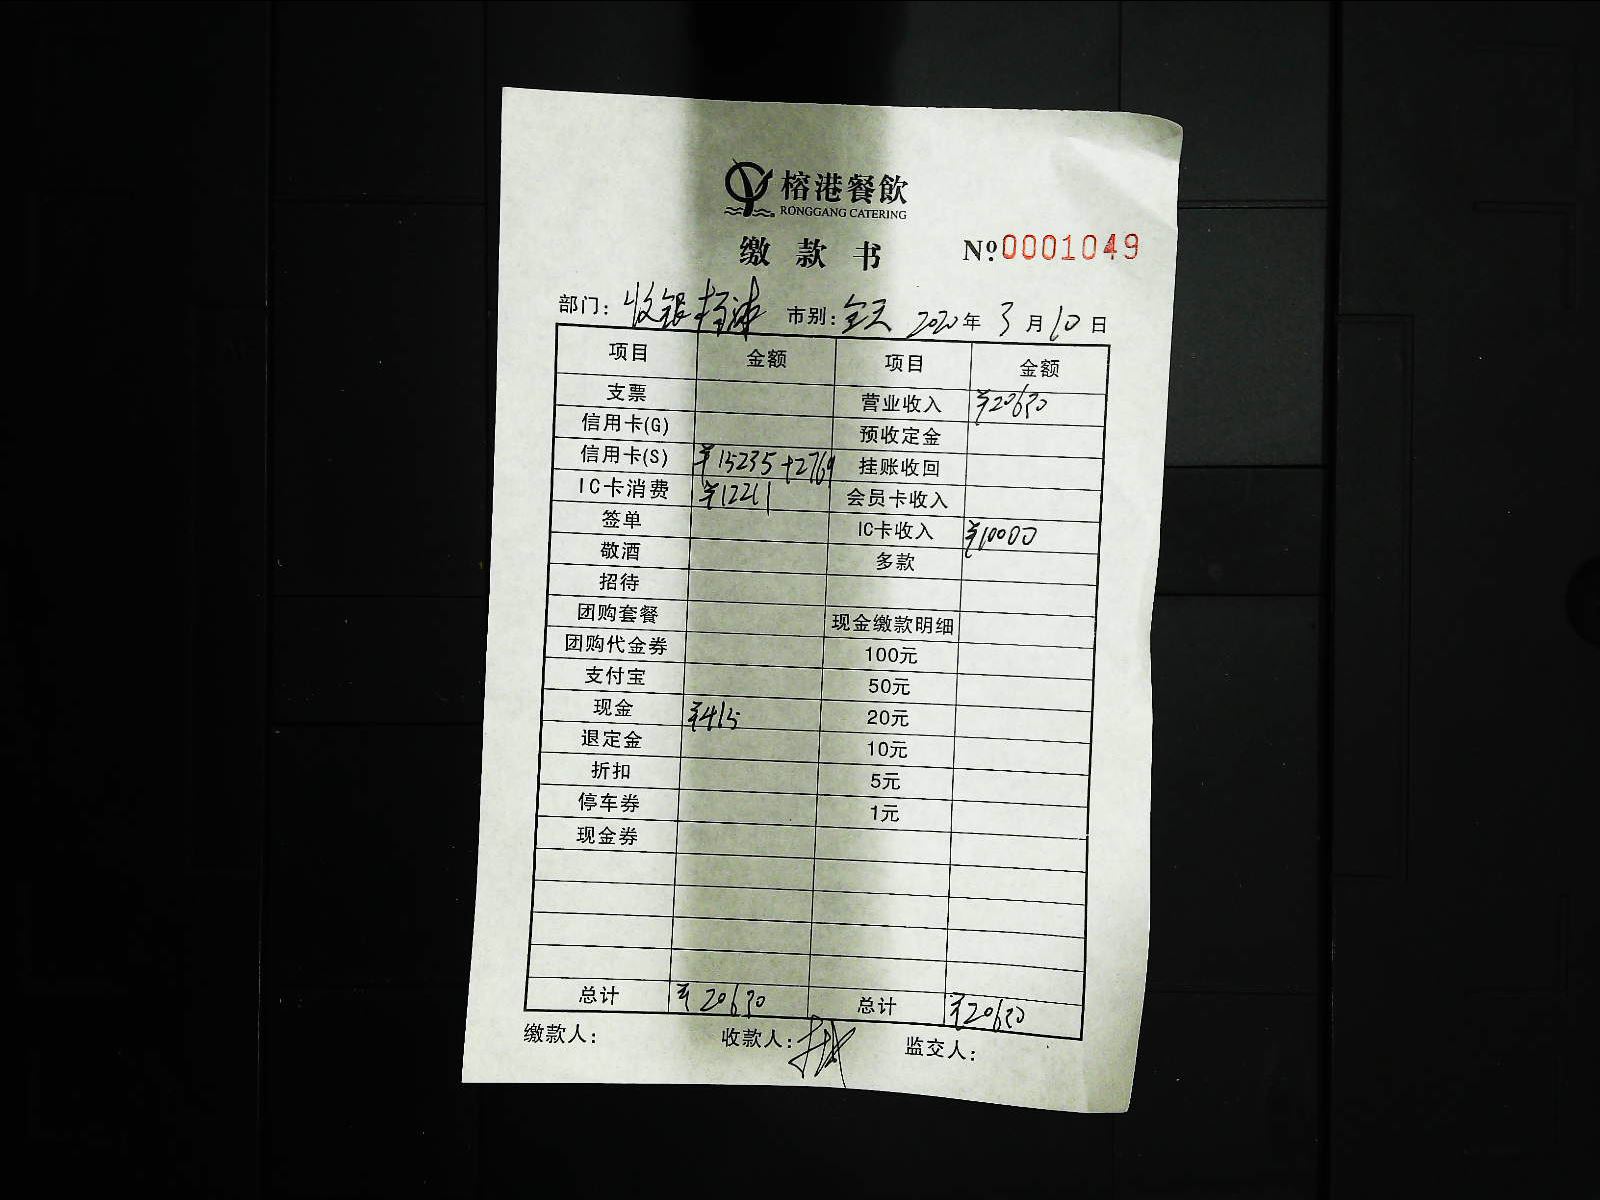 榕港餐飲
RONGGANG CATERING
缴款书 Nº 0001049
部门: 收银 市别: 全天 2020年 3月 10日
项目 金额 项目 金额
支票 营业收入 ¥20630
信用卡(G) 预收定金
信用卡(S) ¥15235+2769 挂账收回
IC卡消费 ¥12211 会员卡收入
签单 IC卡收入 ¥10000
敬酒 多款
招待
团购套餐 现金缴款明细
团购代金券 100元
支付宝 50元
现金 ¥415 20元
退定金 10元
折扣 5元
停车券 1元
现金券
总计 ¥20630 总计 ¥20630
缴款人: 收款人: 监交人: